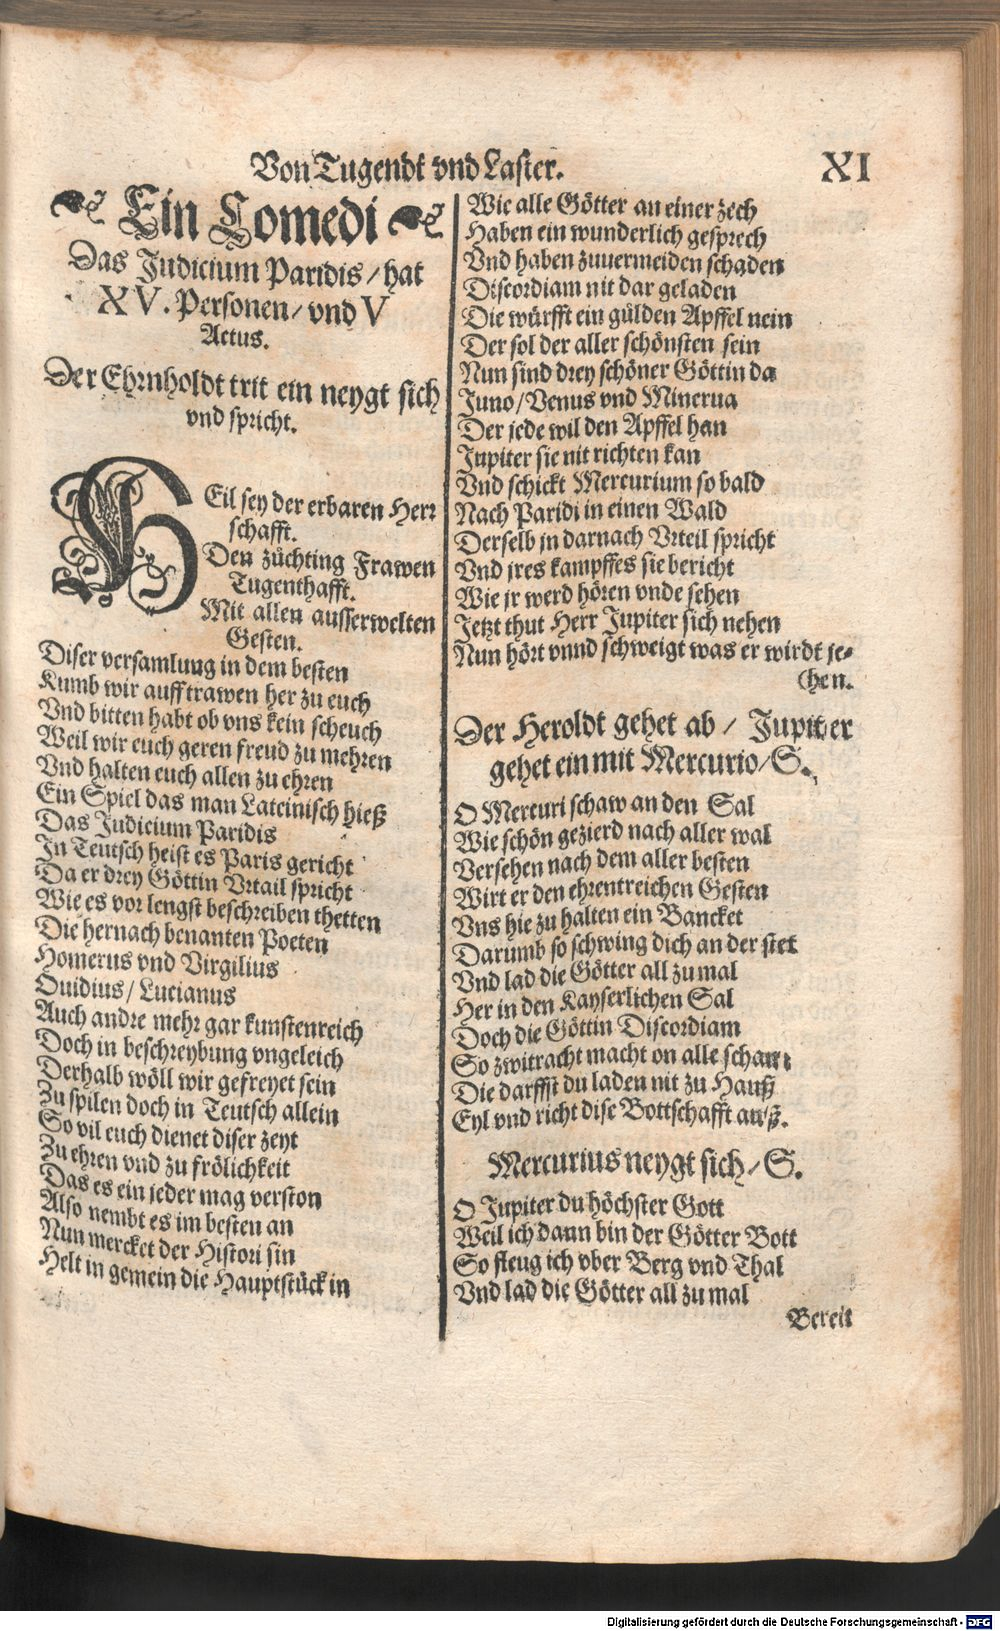 Von Tugendt vnd Laster.
XI
Ein Comedi
Das Judicium Paridis / hat
XV. Personen / vnd V
Actus.
Der Ehrnholdt trit ein neygt sich
vnd spricht.
HEil sey der erbaren Herr
schafft.
Den züchting Frawen
Tugenthafft.
Mit allen ausserwelten
Gesten.
Diser versamlung in dem besten
Kumb wir auff trawen her zu euch
Vnd bitten habt ob vns kein scheuch
Weil wir euch geren freud zu mehren
Vnd halten euch allen zu ehren
Ein Spiel das man Lateinisch hieß
Das Judicium Paridis
In Teutsch heist es Paris gericht
Da er drey Göttin Vrtail spricht
Wie es vor lengst beschreiben thetten
Die hernach benanten Poeten
Homerus vnd Virgilius
Ouidius / Lucianus
Auch andre mehr gar kunstenreich
Doch in beschreybung vngeleich
Derhalb wöll wir gefreyet sein
Zu spilen doch in Teutsch allein
So vil euch dienet diser zeyt
Zu ehren vnd zu frölichkeit
Das es ein jeder mag verston
Also nembt es im besten an
Nun mercket der Histori sin
Helt in gemein die Hauptstück in
Wie alle Götter an einer zech
Haben ein wunderlich gesprech
Vnd haben zuuermeiden schaden
Discordiam nit dar geladen
Die würfft ein gülden Apffel nein
Der sol der aller schönsten sein
Nun sind drey schöner Göttin da
Juno / Venus vnd Minerua
Der jede wil den Apffel han
Jupiter sie nit richten kan
Vnd schickt Mercurium so bald
Nach Paridi in einen Wald
Derselb jn darnach Vrteil spricht
Vnd jres kampffes sie bericht
Wie jr werd hören vnde sehen
Jetzt thut Herr Jupiter sich nehen
Nun hört vnnd schweigt was er wirdt je-
chen.
Der Heroldt gehet ab / Jupiter
gehet ein mit Mercurio / S.
O Mercuri schaw an den Sal
Wie schön gezierd nach aller wal
Versehen nach dem aller besten
Wirt er den ehrentreichen Gesten
Vns hie zu halten ein Bancket
Darumb so schwing dich an der stet
Vnd lad die Götter all zu mal
Her in den Kayserlichen Sal
Doch die Göttin Discordiam
So zwitracht macht on alle scham
Die darffst du laden nit zu Hauß
Eyl vnd richt dise Bottschafft auß.
Mercurius neygt sich / S.
O Jupiter du höchster Gott
Weil ich dann bin der Götter Bott
So fleug ich vber Berg vnd Thal
Vnd lad die Götter all zu mal
Bereit
Digitalisierung gefördert durch die Deutsche Forschungsgemeinschaft - DFG